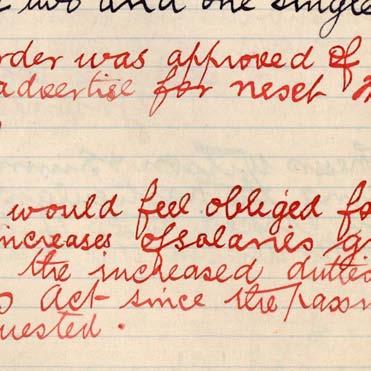 two and one single
rder was approved of
advertise for next
would feel obliged fo
increases of salaries g
the increased duties
Act since the passin
uested.